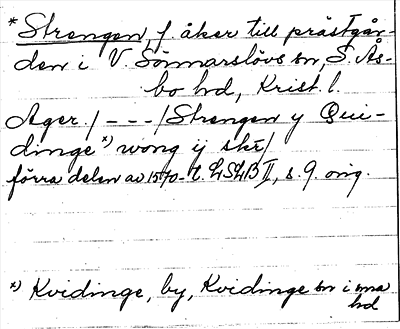 * Strengen, f. åker till prästgår-
den i V. Sönnarslövs sn, S. Ås-
bo hd, Krist. l.
Ager. / - - - / Strengen y Qui-
dinge *) wong ij skr /
förra delen av 1570-t. LSLB II, s. 9. orig.
*) Kvidinge, by, Kvidinge sn i sma
hd